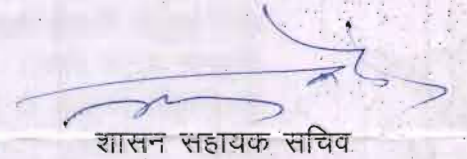 शासन सहायक सचिव